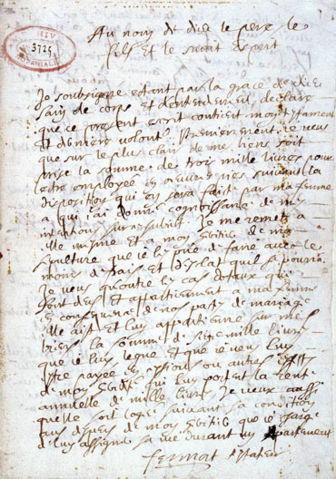 Au nom de dieu le pere, le
fils et le saint esprit
3725
Je soubsigne estant par la grace de dieu
sain de corps et d'entendement, declare
que ce present escrit contient mon testament
et derniere volonté. Premierement je veux
que sur le plus clair de mes biens soit
prise la somme de trois mille livres pour
estre employee en œuvres pies suivant la
disposition qui en sera fait par ma femme
a qui j'ai donné cognoissance de mes
intentions sur ce subiect. Je me remets a
elle mesme et a mon heritier de ma
sepulture que je les prie de faire avec le
moins de frais et d'esclat qu'il se pourra.
Je veux qu'outre les cas dotaux qui
sont deus et appartiennent a ma femme
en consequence de nos pactes de mariage
elle ait et luy appartienne sur mes
biens la somme de sept mille livres
que je luy legue et que je veux luy
estre payee en
de mon heritié qui luy portent la rente
annuelle de mille livres. Je veux aussi
quelle soit logee suivant sa condition
aux despens de mon heritié que je charge
de luy assigner sa vie durant un apartement
Fermat